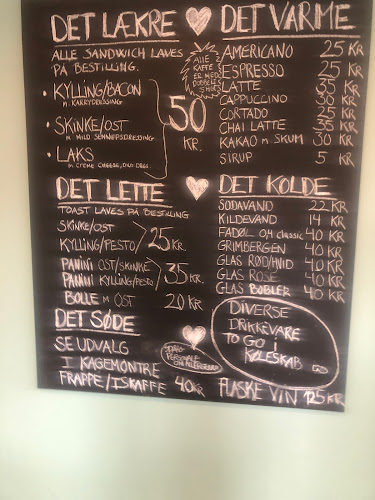 DET LÆKRE
ALLE SANDWICH LAVES
PÅ BESTILLING.
• KYLLING/BACON
M KARRYDRESSING
• SKINKE/OST
M MILD SENNEPSDRESSING
• LAKS
M CREME CHEESE, DILD DRES.
50
KR.
ALLE
KAFFE
ER MED
DOBBELT
SHOT
DET VARME
AMERICANO 25 KR
ESPRESSO 25 KR
LATTE 35 KR
CAPPUCCINO 30 KR
CORTADO 25 KR
CHAI LATTE 35 KR
KAKAO M SKUM 30 KR
SIRUP 5 KR
DET LETTE
TOAST LAVES PÅ BESTILLING
SKINKE/OST
KYLLING/PESTO
25 KR.
PANINI OST/SKINKE
PANINI KYLLING/PESTO
35 KR.
BOLLE M OST 20 KR
DET KOLDE
SODAVAND 22 KR
KILDEVAND 14 KR
FADØL 0,4 CLASSIC 40 KR
GRIMBERGEN 40 KR
GLAS RØD/HVID 40 KR
GLAS ROSE 40 KR
GLAS BOBLER 40 KR
DET SØDE
SE UDVALG
I KAGEMONTRE
FRAPPE/ISKAFFE 40 KR
SPØRG
PERSONALET
OM ALLERGENER
DIVERSE
DRIKKEVARE
TO GO I
KØLESKAB
FLASKE VIN 125 KR